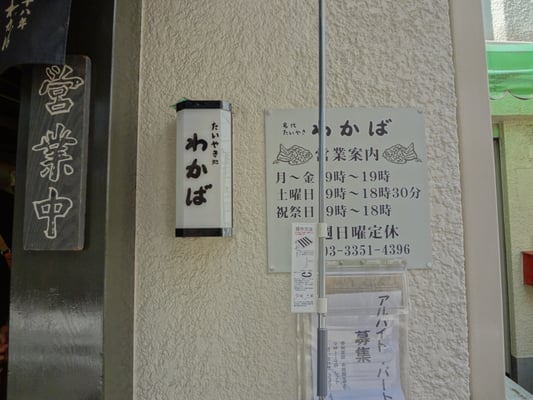 営業中
たいやき処
わかば
名代
たいやき
わかば
営業案内
月～金 9時～19時
土曜日 9時～18時30分
祝祭日 9時～18時
週日曜定休
03-3351-4396
アルバイト・パート
募集